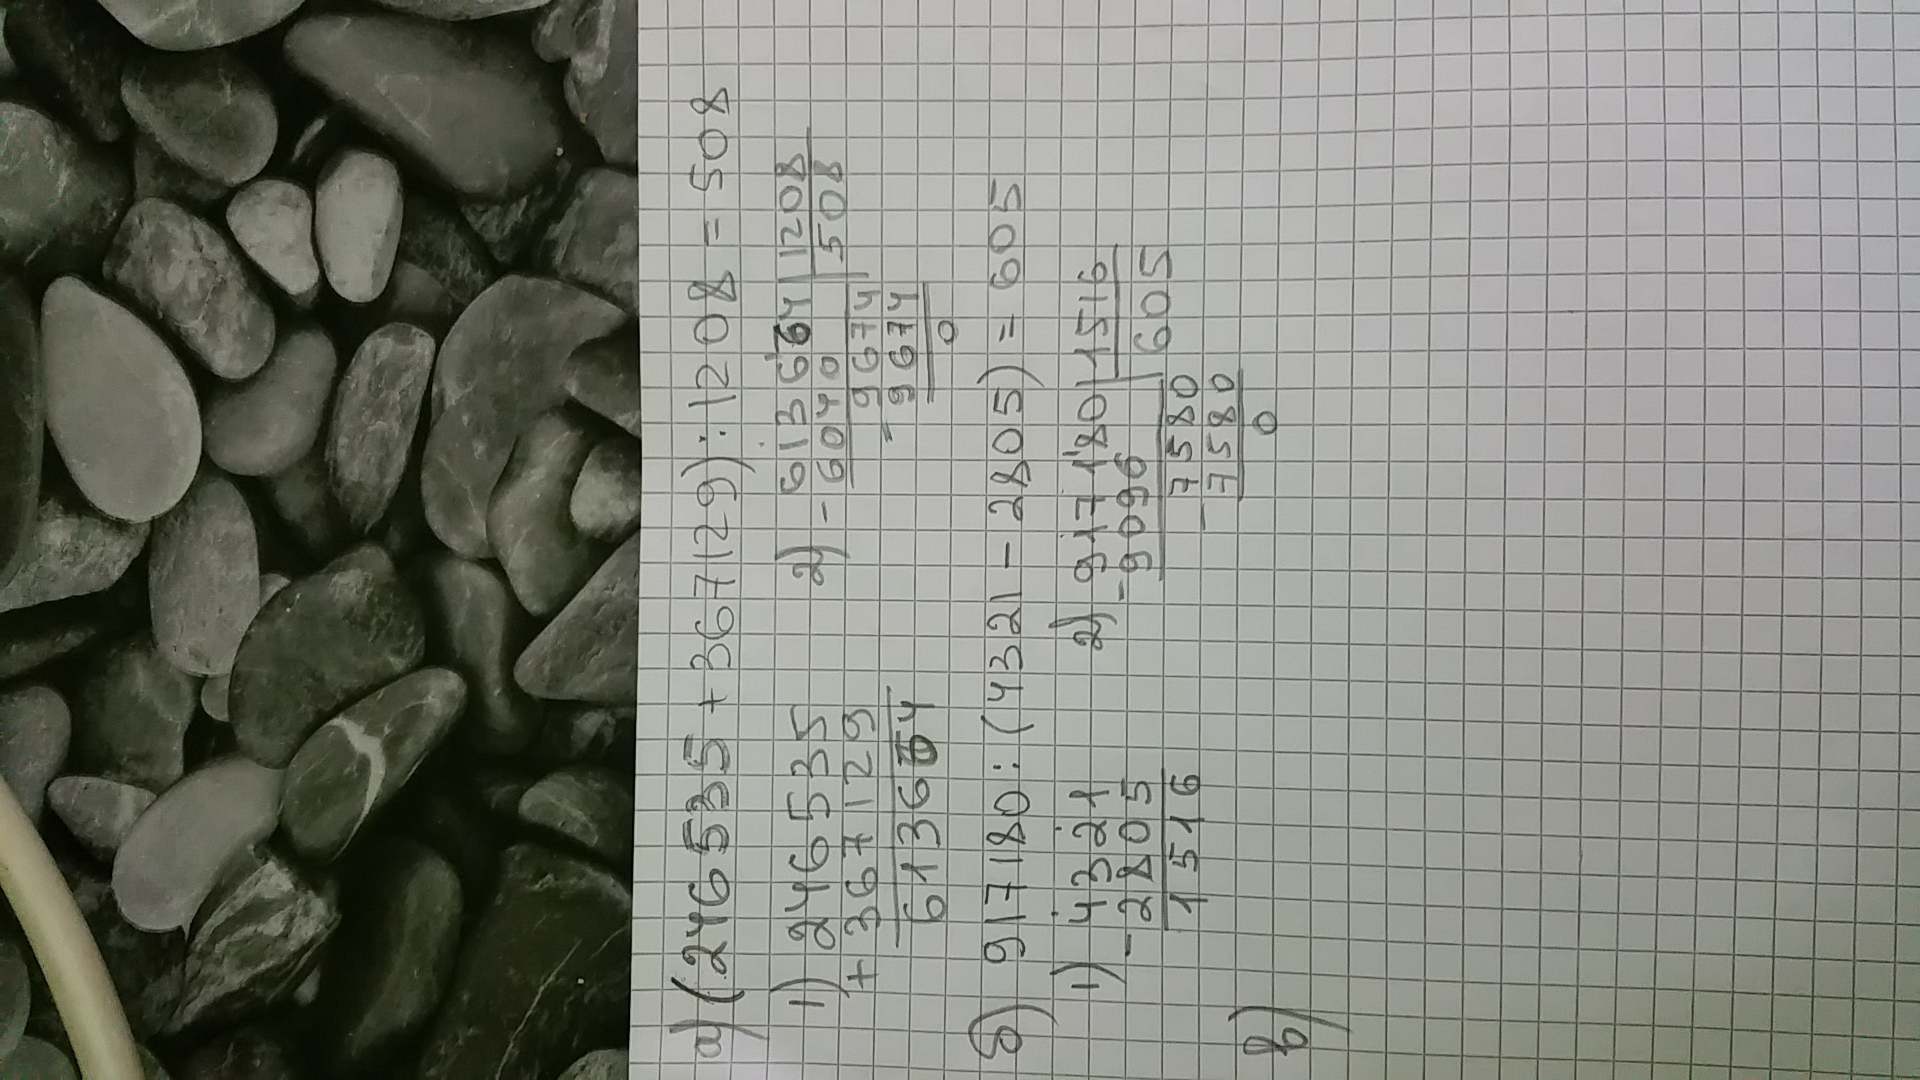 а) (246535+367129):1208=508
1) 246535
+367129
613664
2) -613664|1208
6040 508
9674
-9674
0
б) 917180:(4321-2805)=605
1) 4321
-2805
1516
2) 917180|1516
-9096 605
7580
-7580
0
в)